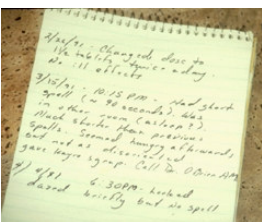 2/22/91: Changed dose to
1 1/2 tablets, twice a day.
No ill effects
3/15/91 - 10:15 PM. Had short
spell (≈ 90 seconds). Was
in other room (asleep?).
Much shorter than previous
spells. Seemed hungry afterwards,
but not as disoriented.
gave Karo syrup. Call Dr. O'Brien
4/91 6:30PM. looked
dazed briefly but no spell